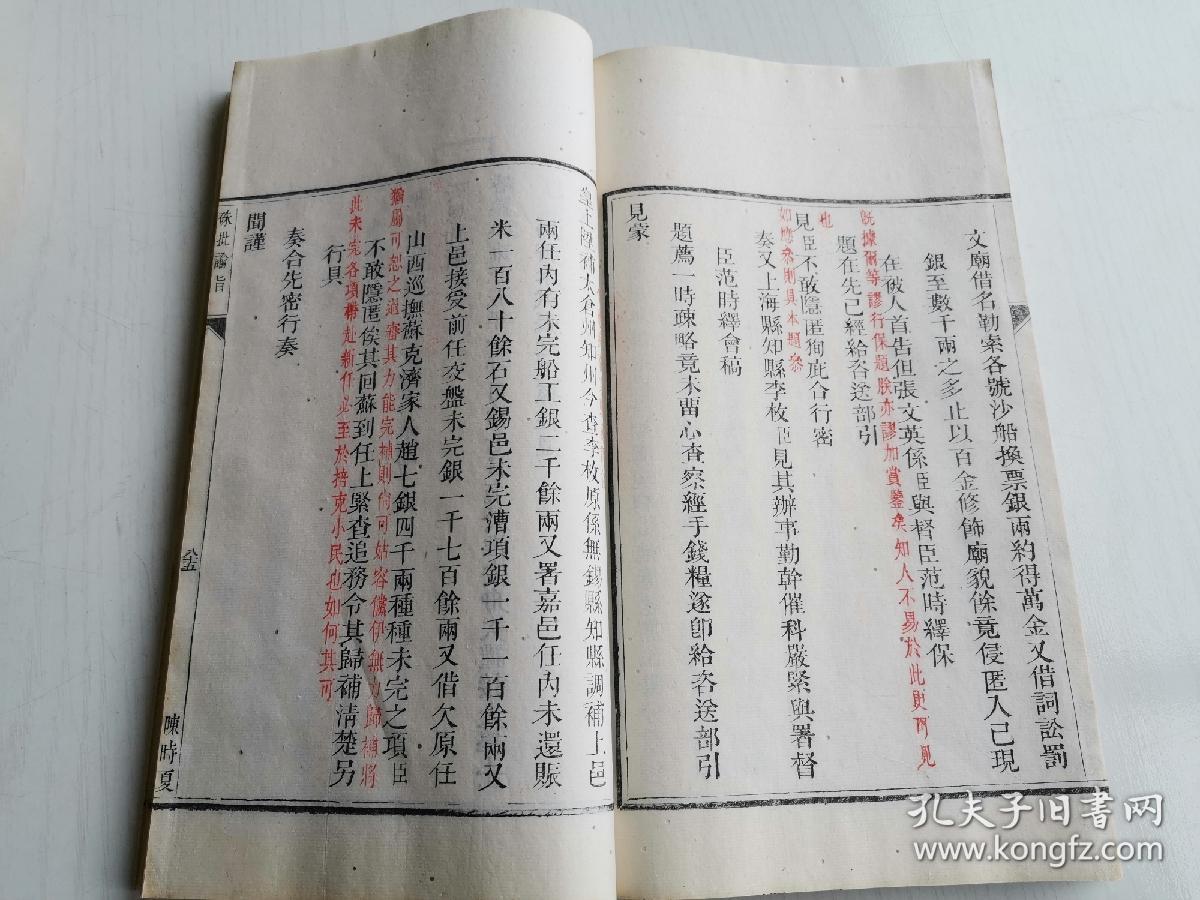 文廟借名勒索各號沙船換票銀兩約得萬金又借詞訟罰
銀至數千兩之多止以百金修飾廟貌餘竟侵匿入己現
在被人首告但張文英係臣與督臣范時繹保
題在先已經給咨送部引
既據爾等謬行保題朕亦謬加賞鑒矣知人不易於此更可見
也
見臣不敢隱匿徇庇合行密
如應參則具本題參
奏又上海縣知縣李枚臣見其辦事勤幹催科嚴緊與署督
臣范時繹會稿
題薦一時疎略竟未畱心查察經手錢糧遂卽給咨送部引
見蒙
皇上陞補太倉州知州今查李枚原係無錫縣知縣調補上邑
兩任內有未完船工銀二千餘兩又署嘉邑任內未還賑
米一百八十餘石又錫邑未完漕項銀一千一百餘兩又
上邑接受前任交盤未完銀一千七百餘兩又借欠原任
山西巡撫蘇克濟家人趙七銀四千兩種種未完之項臣
猶屬可恕之過審其力能完補則尚可姑容儻伊無力歸補將
不敢隱匿俟其回蘇到任上緊查追務令其歸補淸楚另
此未完各項帶赴新任必至於掊克小民也如何其可
行具
奏合先密行奏
聞謹
硃批諭旨
八五
陳時夏
孔夫子旧书网
www.kongfz.com